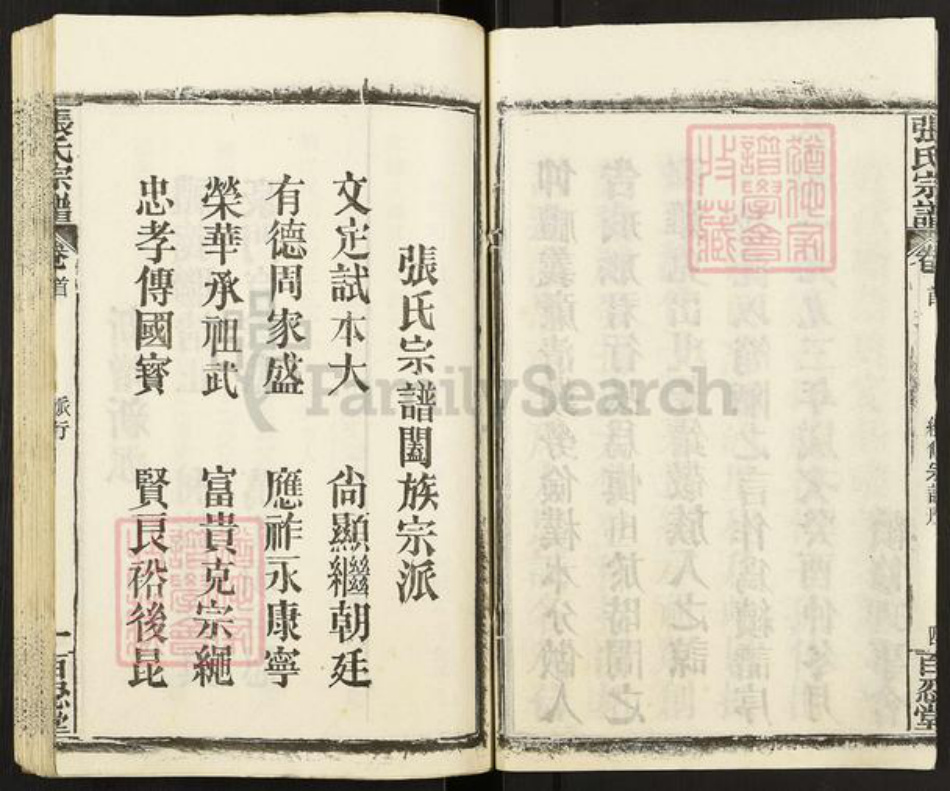 張氏宗譜
卷首
續修宗譜序
四
百忍堂
猶他家譜學會收藏
張氏宗譜闔族宗派
文定試本大 尚顯繼朝廷
有德周家盛 應祚永康寧
榮華承祖武 富貴克宗繩
忠孝傳國寶 賢良裕後昆
猶他家譜學會收藏
張氏宗譜
卷首
派行
一
百忍堂
FamilySearch